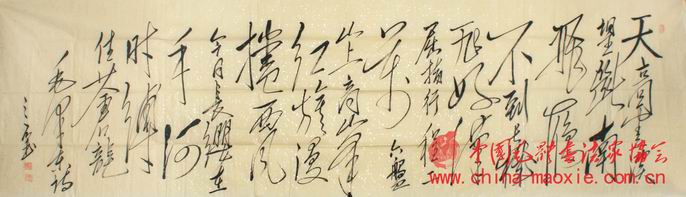 天高云淡
望断南
飞雁
不到长城
非好汉
屈指行程二
万 六盘
山上高峰
红旗漫
捲西风
今日长缨在
手何
时缚
住苍龙
毛泽东诗
中国毛体书法家协会
www.china-maoxie.com